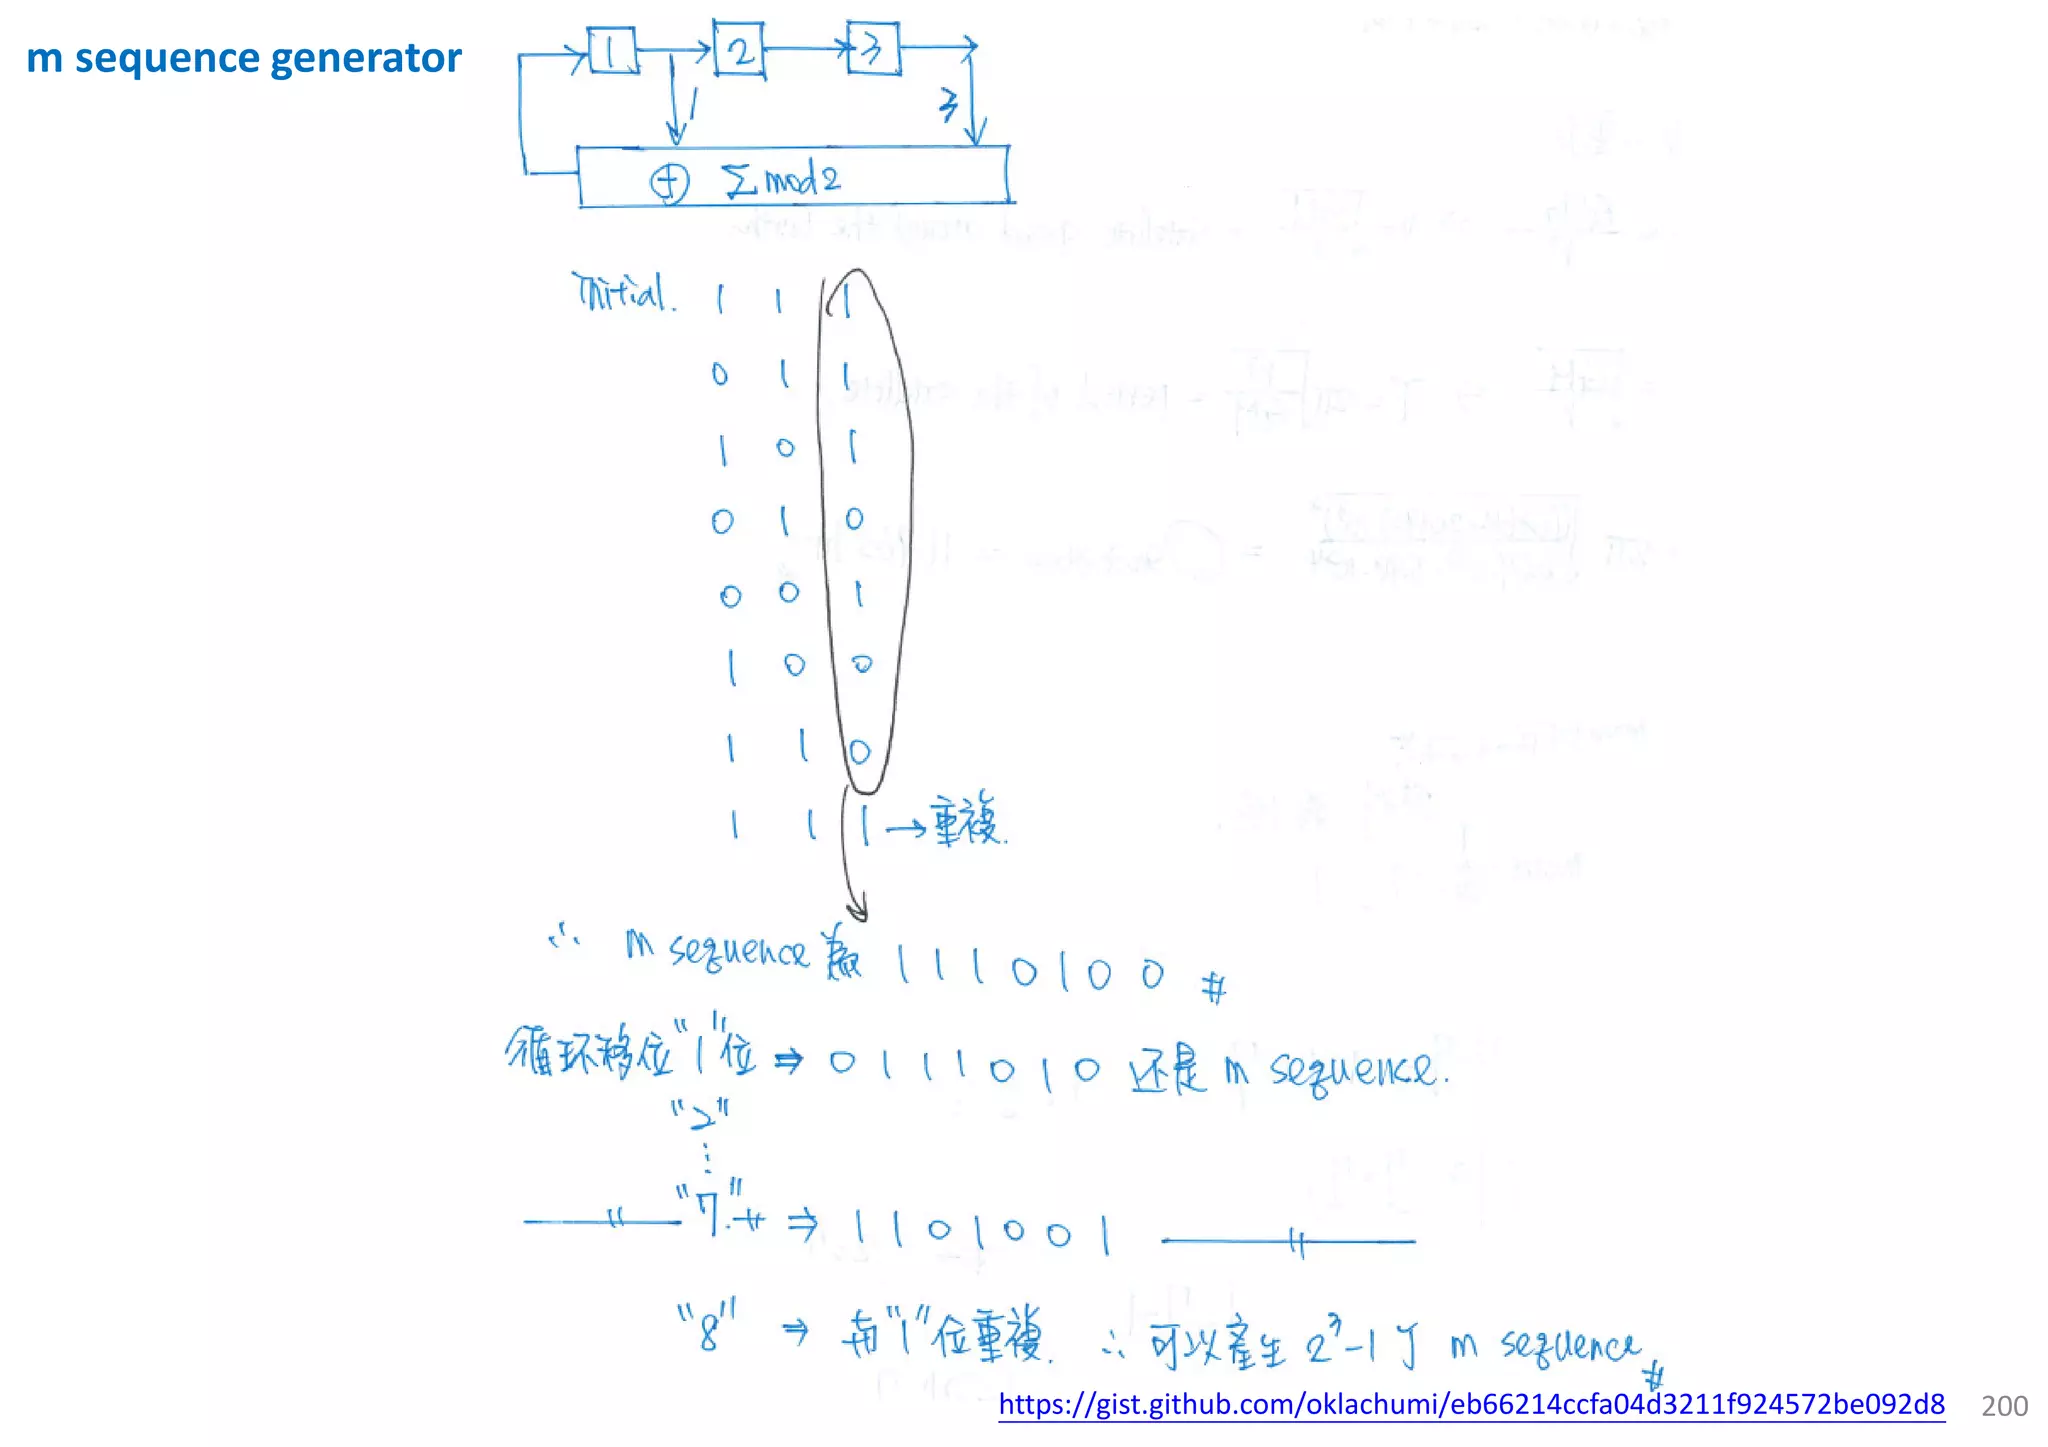 m sequence generator
1 2 3
1 3
⊕ Σ mod 2
Initial. 1 1 1
0 1 1
1 0 1
0 1 0
0 0 1
1 0 0
1 1 0
1 1 1 → 重複.
∴ m sequence 為 1 1 1 0 1 0 0 #
循环移位"1"位 ⇒ 0 1 1 1 0 1 0 还是 m sequence.
"2"
⋮
〃 "7" 〃 ⇒ 1 1 0 1 0 0 1 〃
"8" ⇒ 与"1"位重複. ∴ 可以產生 2³-1 丁 m sequence #
https://gist.github.com/oklachumi/eb66214ccfa04d3211f924572be092d8 200